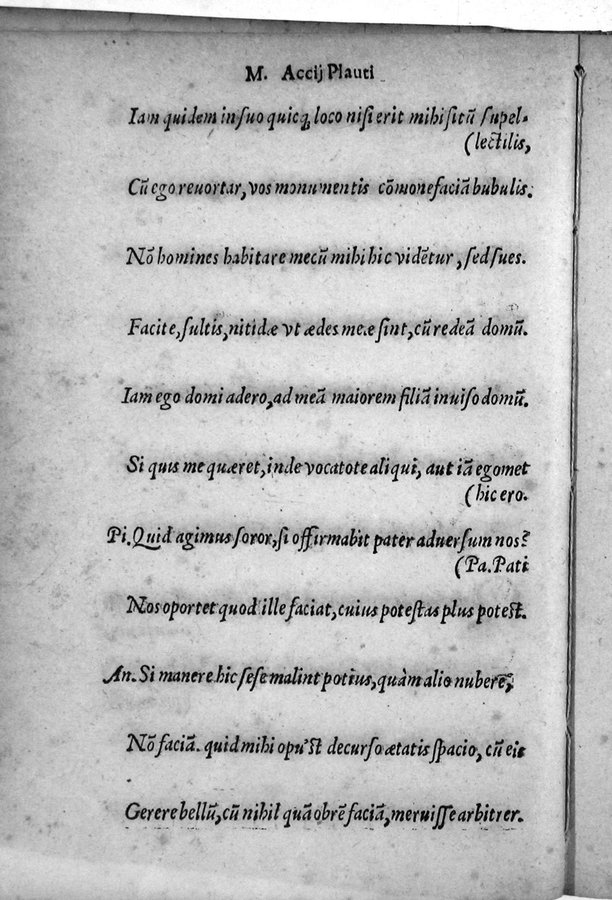 M. Accij Plauti
Iam quidem in suo quicq; loco nisi erit mihi sitū supel-
(lectilis,
Cū ego reuortar, vos monumentis cōmonefaciā bubulis.
Nō homines habitare mecū mihi hic vidētur, sed sues.
Facite, sultis, nitidæ vt ædes meæ sint, cū redeā domū.
Iam ego domi adero, ad meā maiorem filiā inuiso domū.
Si quis me quæret, inde vocatote aliqui, aut iā egomet
(hic ero.
Pi. Quid agimus soror, si offirmabit pater aduersum nos?
(Pa. Pati
Nos oportet quod ille faciat, cuius potestas plus potest.
An. Si manere hic sese malint potius, quàm alio nuberē,
Nō faciā. quid mihi opu'st decurso ætatis spacio, cū eis
Gerere bellū, cū nihil quā obrē faciā, meruisse arbitrer.